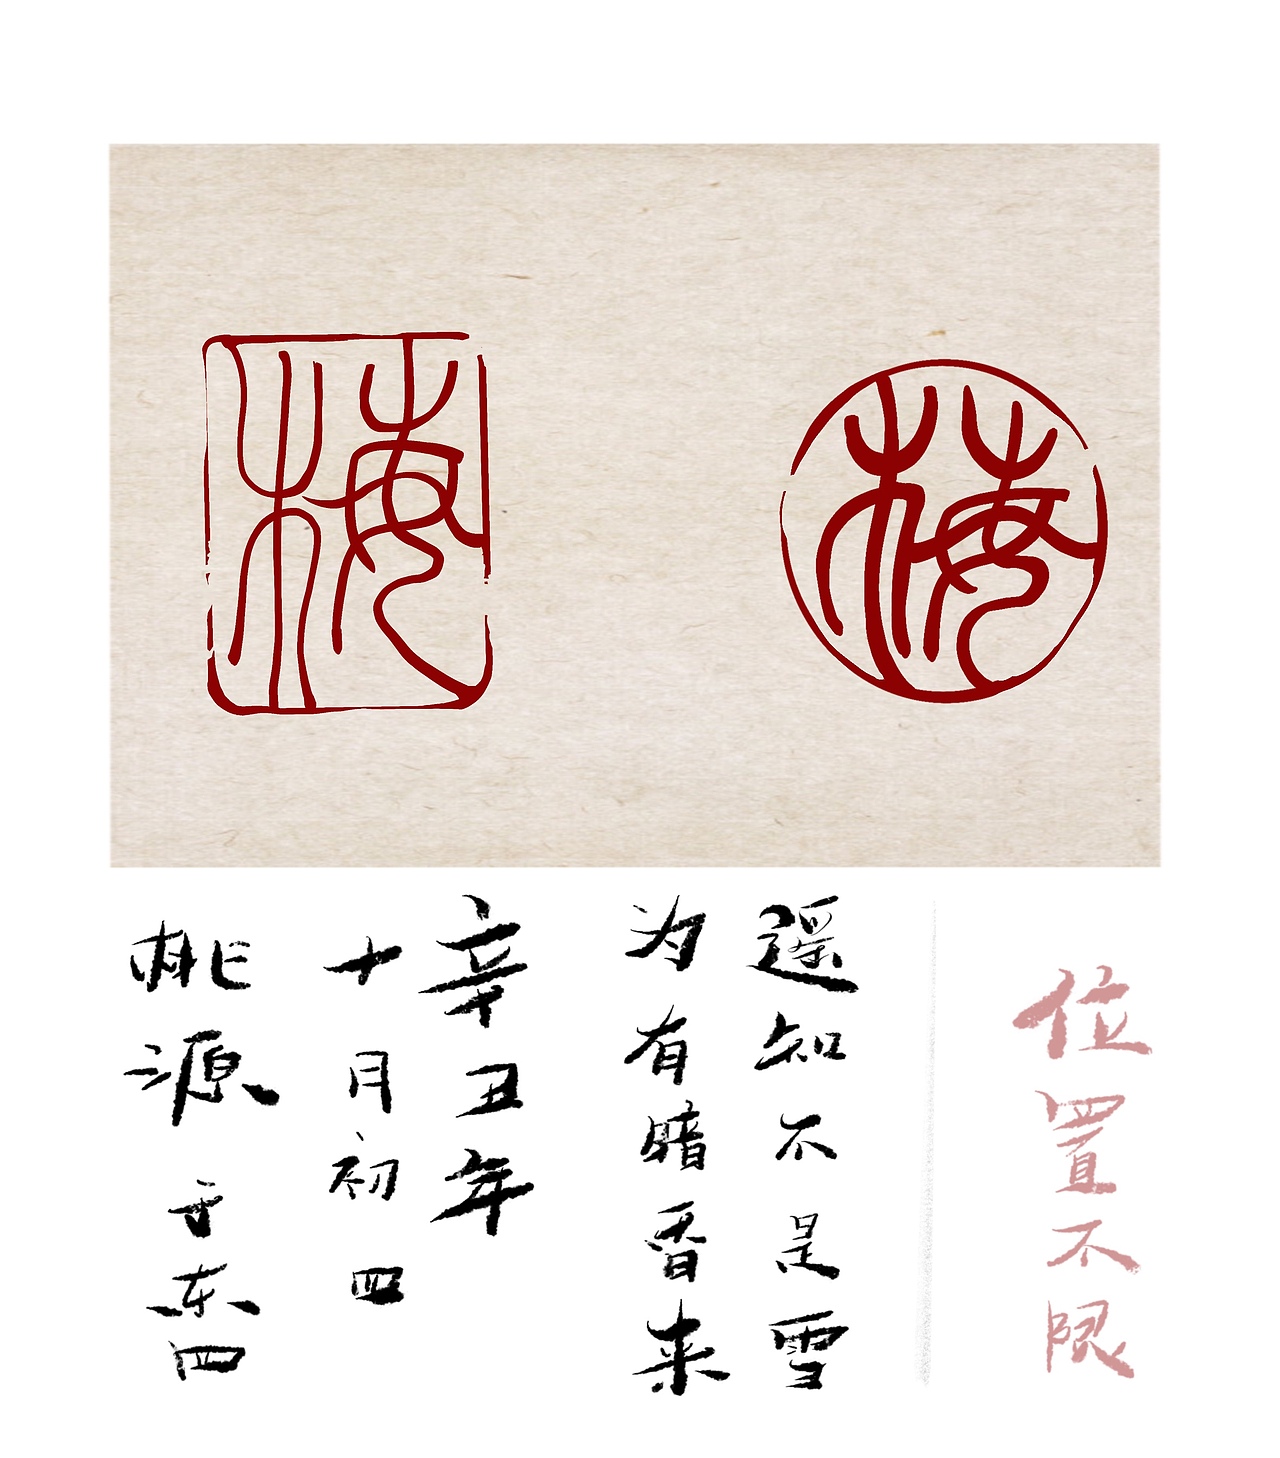 梅
梅
位置不限
遥知不是雪
为有暗香来
辛丑年
十月初四
桃源于东四